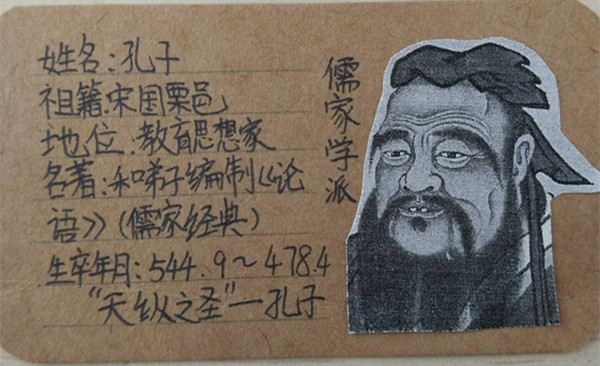 姓名:孔子
祖籍:宋国栗邑
地位:教育思想家
名著:和啼子编制《论
语》(儒家经典)
生卒年月:544.9~478.4
"天纵之圣"—孔子
儒家学派